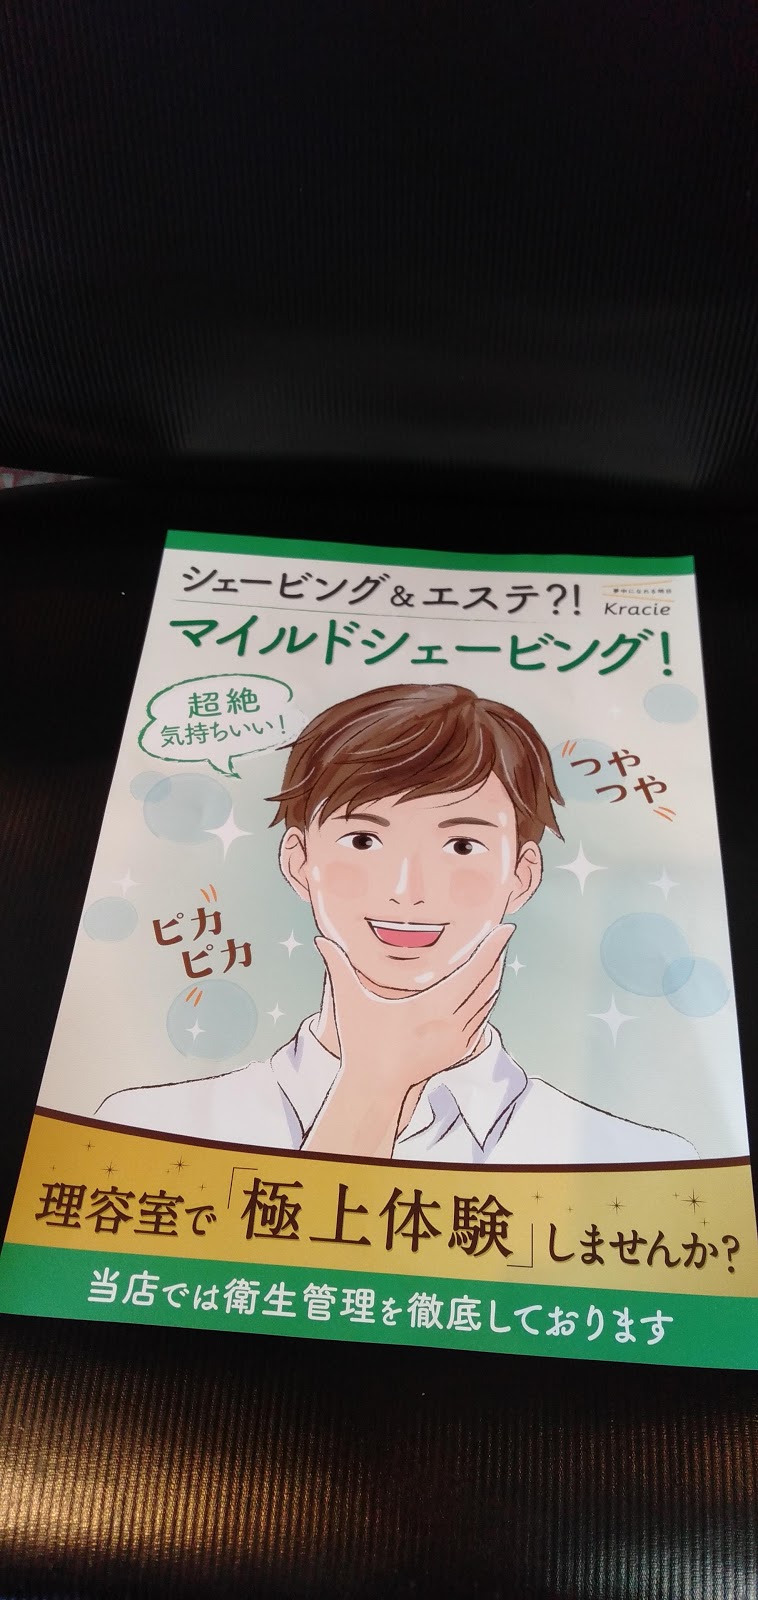 シェービング&エステ?!
夢中になれる明日
Kracie
マイルドシェービング!
超絶
気持ちいい!
つや
つや
ピカ
ピカ
理容室で「極上体験」しませんか?
当店では衛生管理を徹底しております